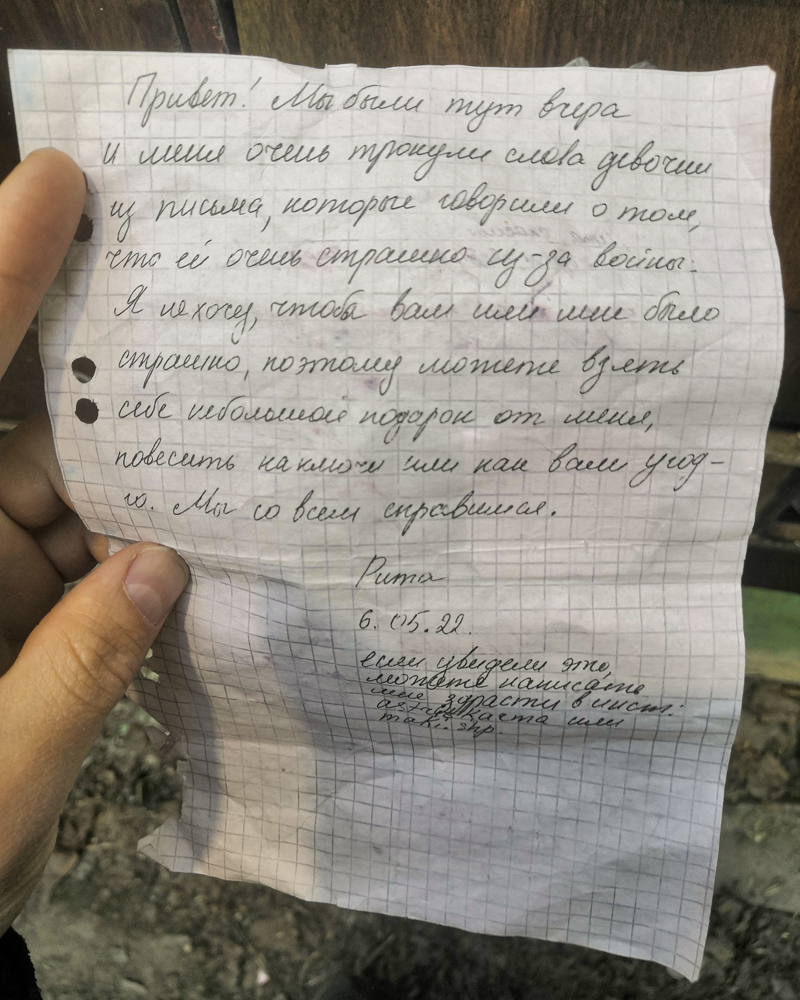 Привет! Мы были тут вчера
и меня очень тронули слова девочки
из письма, которые говорили о том,
что ей очень страшно из-за войны.
Я не хочу, чтобы вам или мне было
страшно, поэтому можете взять
себе небольшой подарок от меня,
повесить на ключи или как вам угод-
но. Мы со всем справимся.
Рита
6.05.22.
если увидели это,
можете написать
мне здрасти в инст:
или